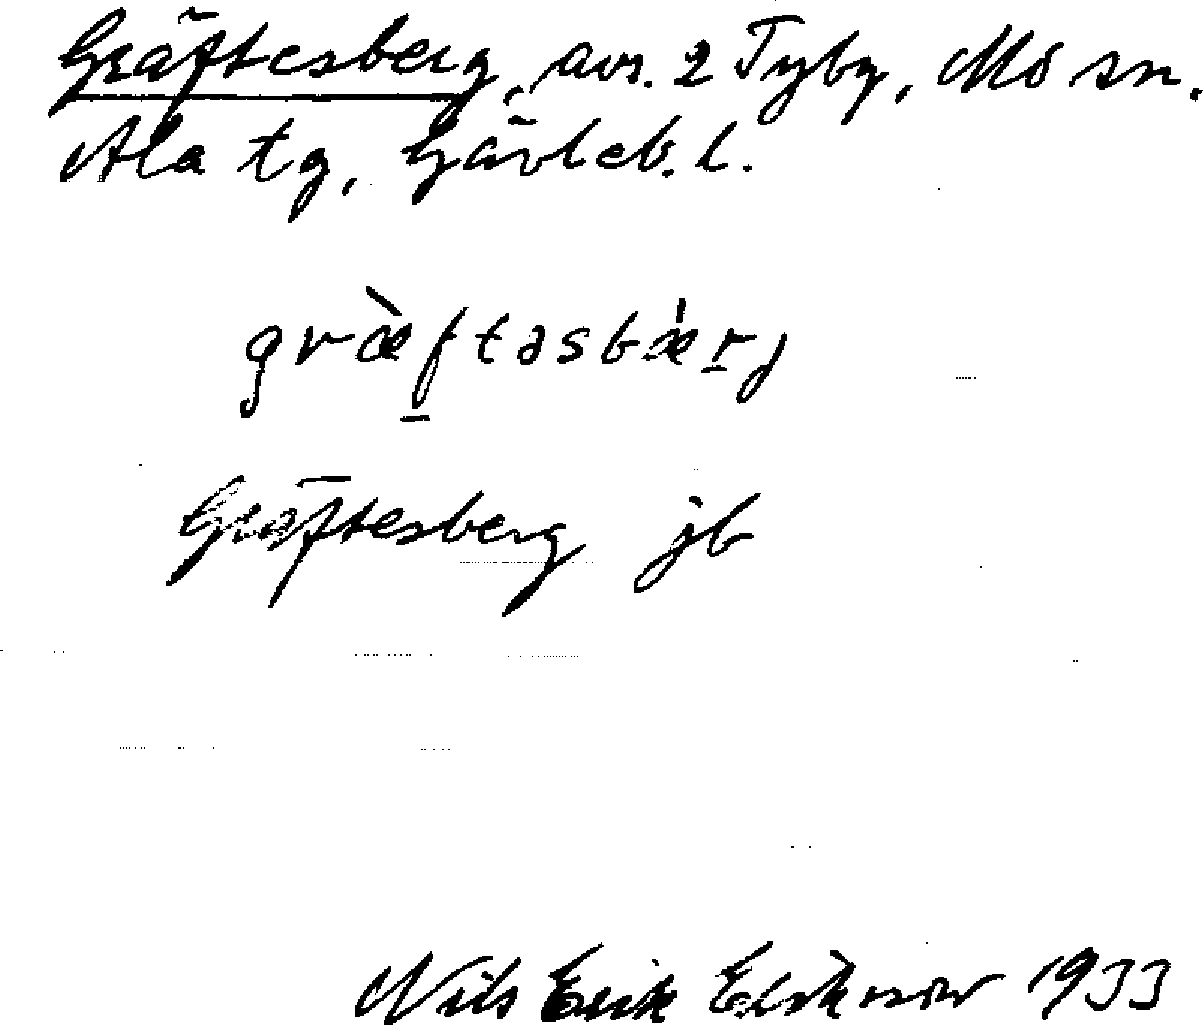 Gräftesberg, avs. 2 Tyby, Mo sn.
Ala tg, Gävleb. l.
græ̀ftəsbæ̍rj
Gräftesberg jb
Nils Erik 1933